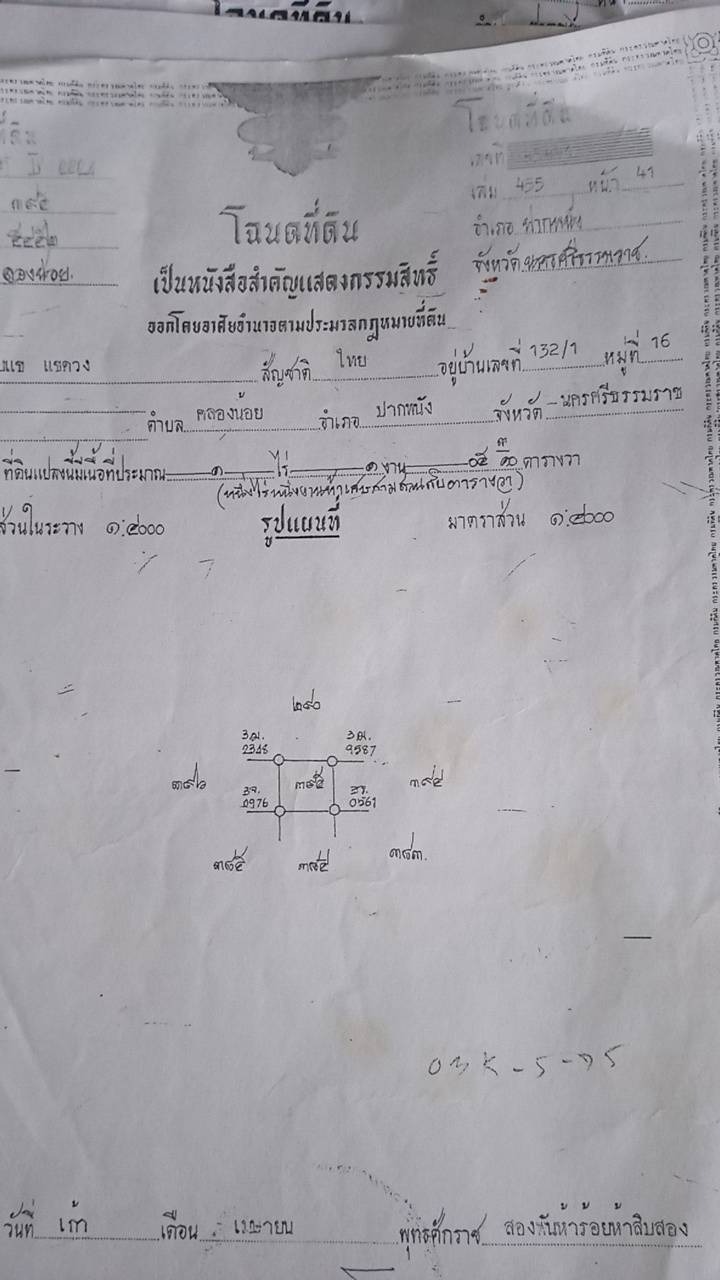 โฉนดที่ดิน
โฉนดที่ดิน
ที่ดิน
เลขที่
เล่ม 455 หน้า 41
๓๙๕
อำเภอ ปากพนัง
จังหวัด นครศรีธรรมราช
คลองน้อย.
โฉนดที่ดิน
เป็นหนังสือสำคัญแสดงกรรมสิทธิ์
ออกโดยอาศัยอำนาจตามประมวลกฎหมายที่ดิน
แซควง สัญชาติ ไทย อยู่บ้านเลขที่ 132/1 หมู่ที่ 16
ตำบล คลองน้อย อำเภอ ปากพนัง จังหวัด นครศรีธรรมราช
ที่ดินแปลงนี้มีเนื้อที่ประมาณ ๑ ไร่ ๑ งาน ๐๕ ๓/๑๐ ตารางวา
(หนึ่งไร่หนึ่งงานห้าเศษสามส่วนสิบตารางวา)
ส่วนในระวาง ๑:๔๐๐๐ รูปแผนที่ มาตราส่วน ๑:๔๐๐๐
๒๙๐
2348 9587
๓๙๖ ๓๙๕ ๓๙๔
0976 0561
๓๘๓.
วันที่ เก้า เดือน เมษายน พุทธศักราช สองพันห้าร้อยห้าสิบสอง